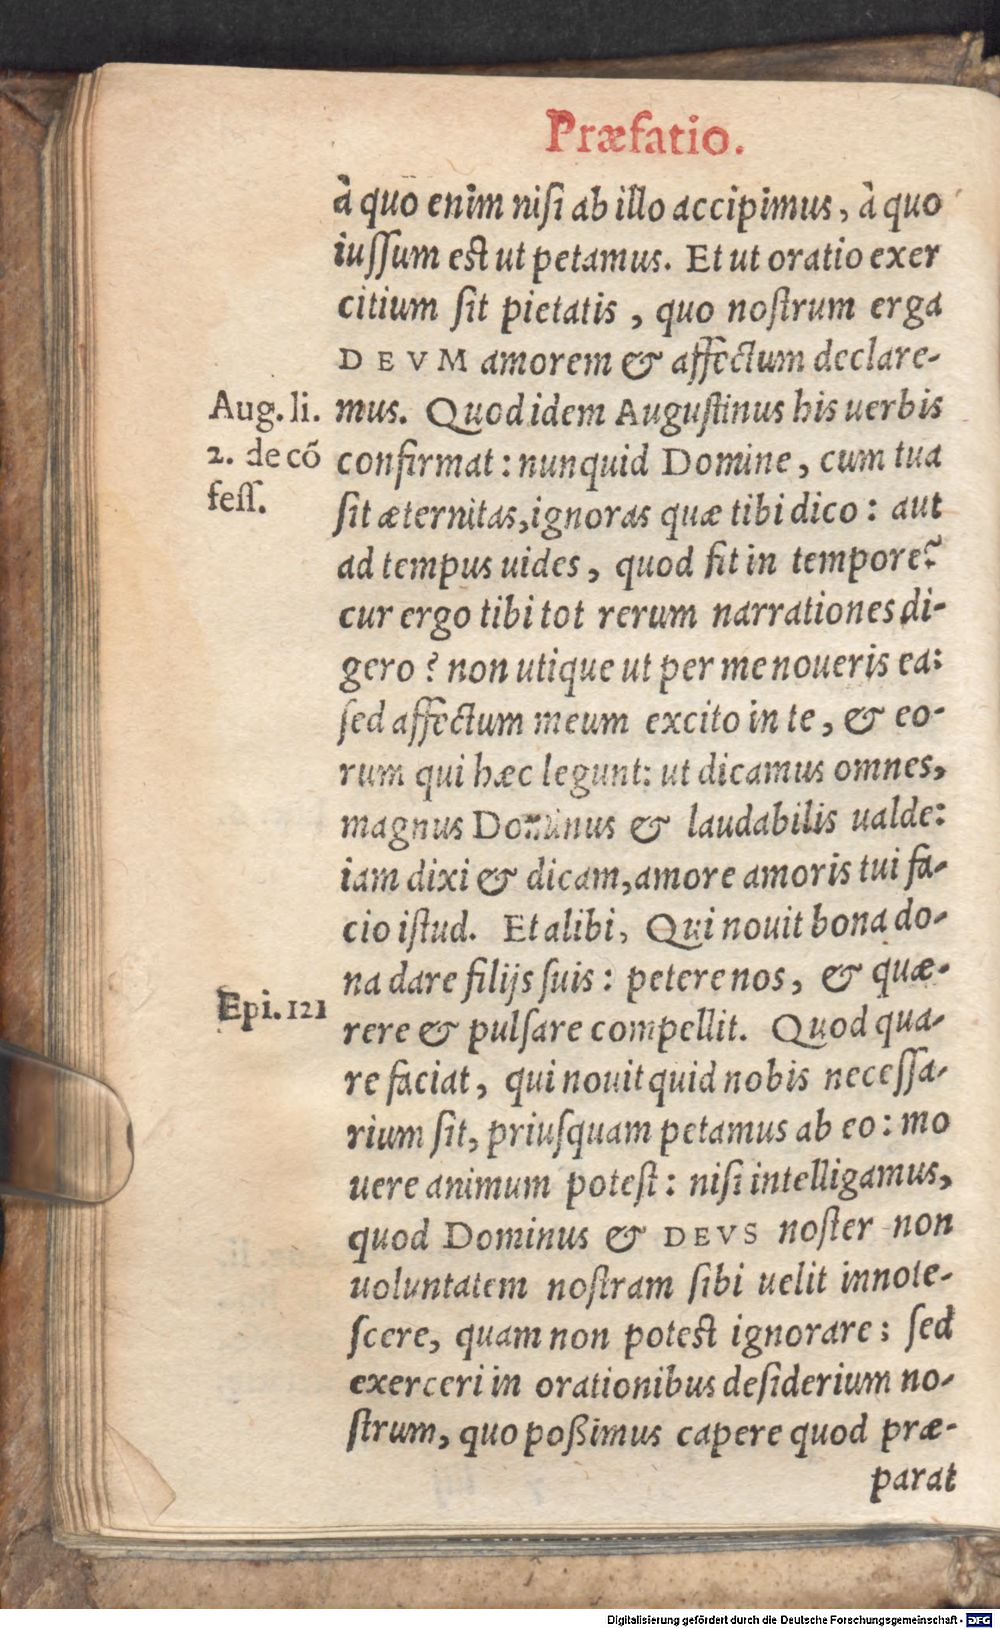 Præfatio.
à quo enim niſi ab illo accipimus, à quo
iuſſum eſt ut petamus. Et ut oratio exer
citium ſit pietatis, quo noſtrum erga
DEVM amorem & affectum declare-
Aug. li.
2. de cõ
feſſ.
mus. Quod idem Auguſtinus his uerbis
confirmat: nunquid Domine, cum tua
ſit æternitas, ignoras quæ tibi dico: aut
ad tempus uides, quod fit in tempore?
cur ergo tibi tot rerum narrationes di-
gero? non utique ut per me noueris ea:
ſed affectum meum excito in te, & eo-
rum qui hæc legunt: ut dicamus omnes,
magnus Dominus & laudabilis ualde:
iam dixi & dicam, amore amoris tui fa-
cio iſtud. Et alibi, Qui nouit bona do-
na dare filijs ſuis: petere nos, & quæ-
Epi. 121
rere & pulſare compellit. Quod qua-
re faciat, qui nouit quid nobis neceſſa-
rium ſit, priuſquam petamus ab eo: mo
uere animum poteſt: niſi intelligamus,
quod Dominus & DEVS noſter non
uoluntatem noſtram ſibi uelit innote-
ſcere, quam non poteſt ignorare: ſed
exerceri in orationibus deſiderium no-
ſtrum, quo poßimus capere quod præ-
parat
Digitalisierung gefördert durch die Deutsche Forschungsgemeinschaft - DFG